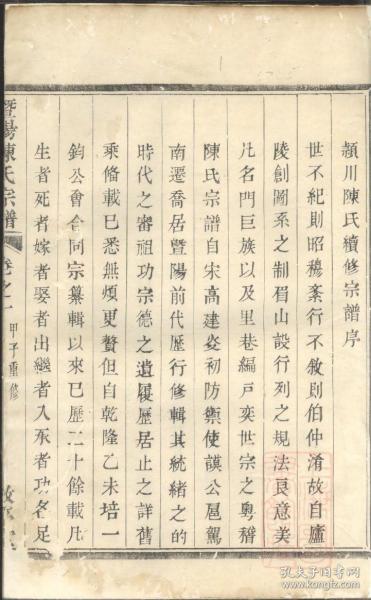 潁川陳氏續修宗譜序
世不紀則昭穆紊行不敘則伯仲淆故自廬
陵創圖系之制眉山設行列之規法良意美
凡名門巨族以及里巷編戶奕世宗之粵稽
陳氏宗譜自宋高建炎初防禦使謨公扈駕
南遷喬居暨陽前代歷行修輯其統緒之的
時代之審祖功宗德之遺履歷居止之詳舊
乘俻載已悉無煩更贅但自乾隆乙未培一
鈞公會合同宗纂輯以來已歷二十餘載凡
生者死者嫁者娶者出繼者入泮者功名足
暨陽陳氏宗譜
卷之一
甲子重修
孔夫子旧书网